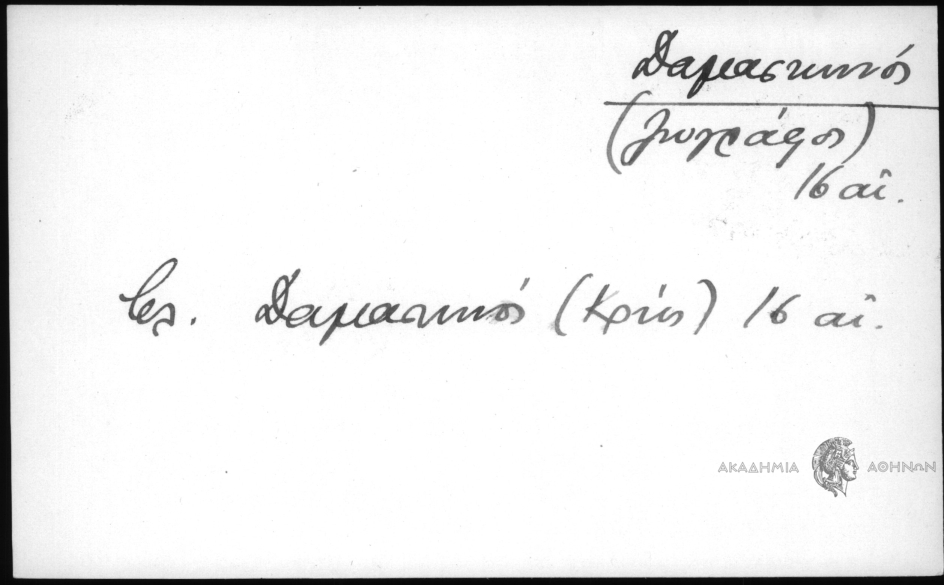 Δαμασκηνός
(ζωγράφος)
16 αἰ.
βλ. Δαμασκηνός (Κρής) 16 αἰ.
ΑΚΑΔΗΜΙΑ ΑΘΗΝΩΝ